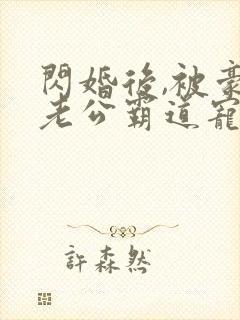 閃婚後,被豪
老公霸道寵
許森然